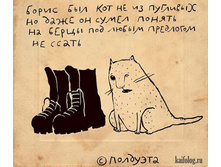 борис был кот не из пугливых
но даже он сумел понять
на берцы под любым предлогом
не ссать
© полоуэта
kaifolog.ru